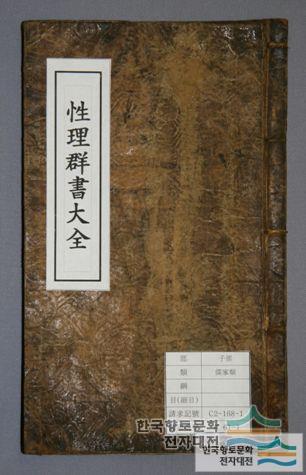 性理群書大全
部 子部
類 儒家類
綱
目(細目)
請求記號 C2-168-1
한국향토문화
전자대전
한국향토문화
전자대전